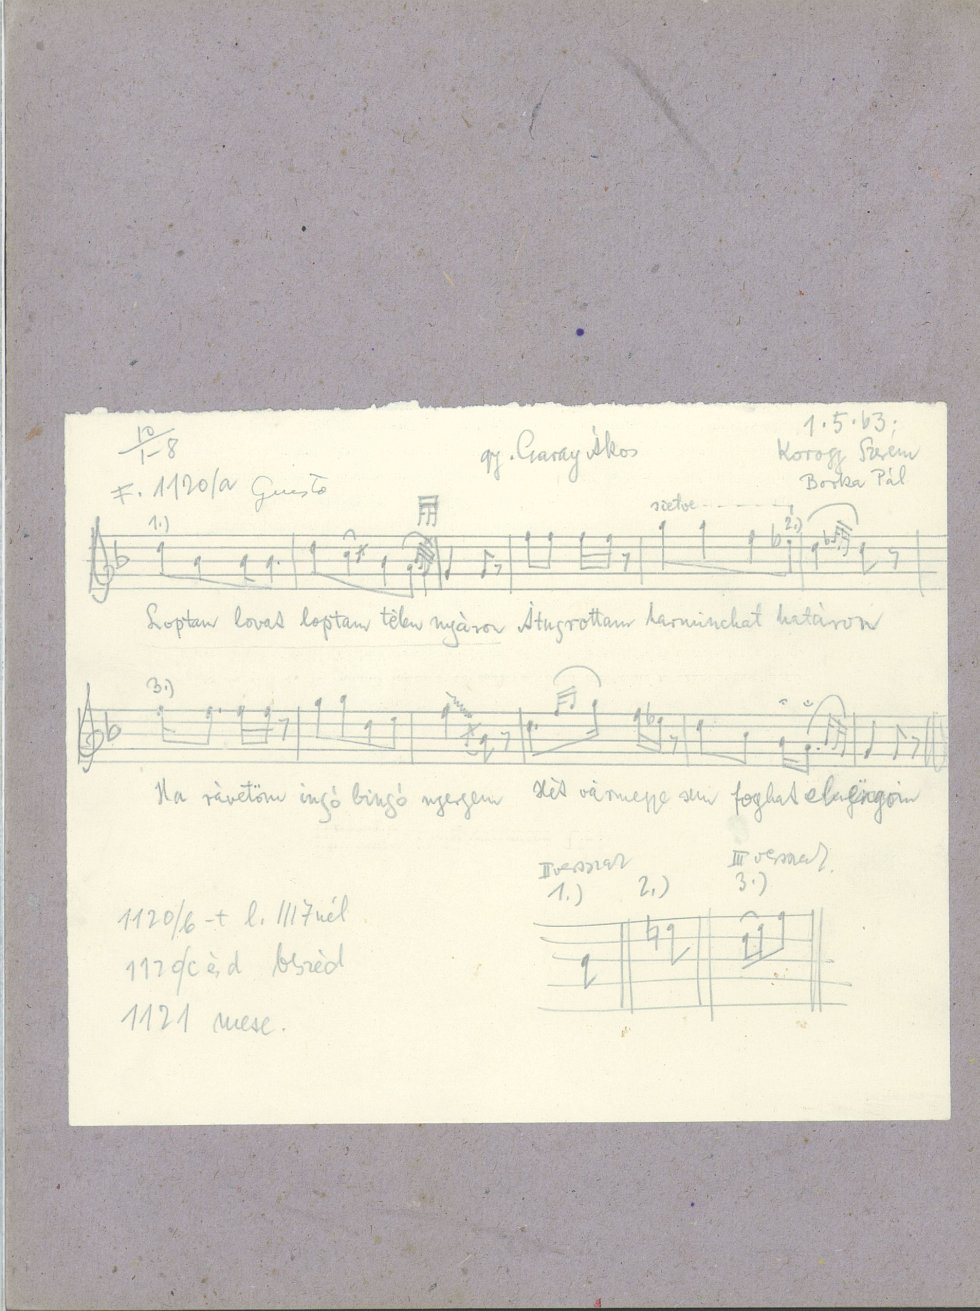 10/1-8
gy. Garay Ákos
1.5.63;
Korogy Szerém
Borka Pál
F. 1120/a Giusto
1.) sietve 2.)
Loptam lovat loptam télen nyáron Átugrottam harminchat határon
3.)
Ha rávetöm ingó bingó nyergem Hét vármegye sem foghat el
II versszak III versszak
1.) 2.) 3.)
1120/b -t l. 1117nél
1120/c é, d beszéd
1121 mese.